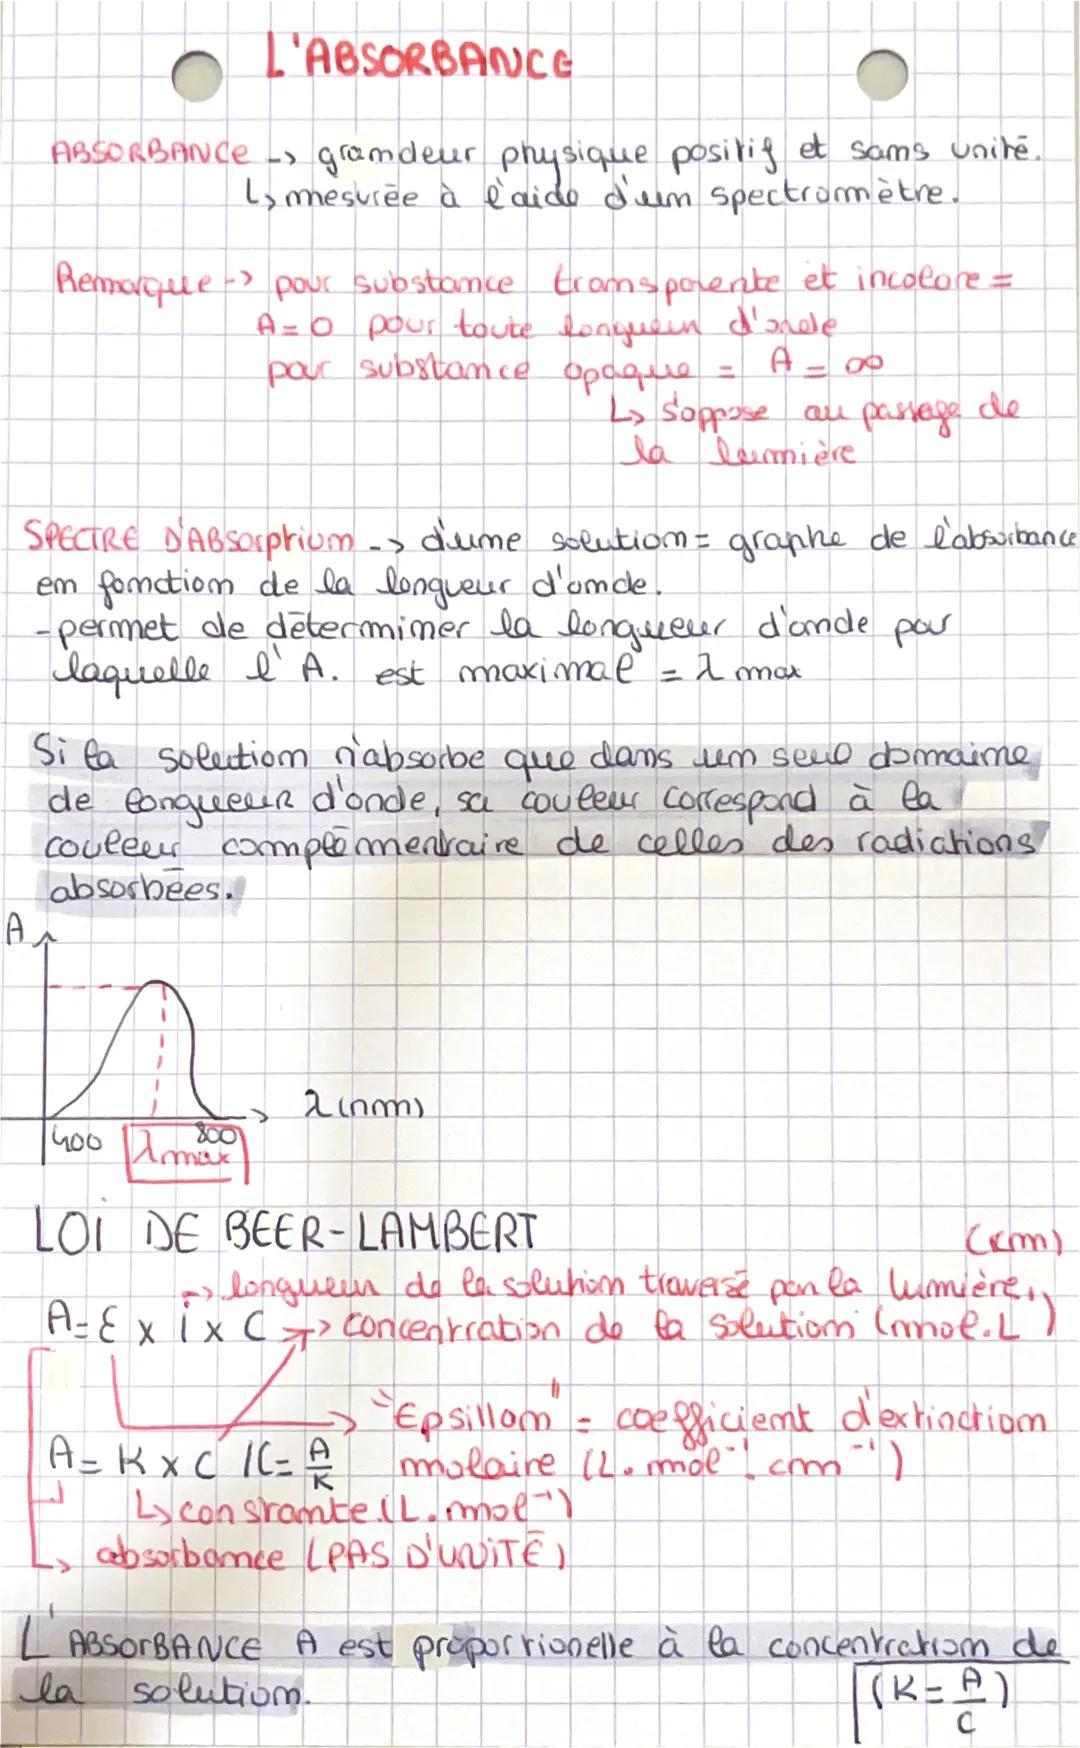 L'ABSORBANCE
ABSORBANCE -> grandeur physique positif et sans unité.
↳ mesurée à l'aide d'un spectromètre.
Remarque -> pour substance transparente et incolore =
A = 0 pour toute longueur d'onde
pour substance opaque = A = ∞
↳ s'oppose au passage de
la lumière
SPECTRE D'ABSorption -> d'une solution = graphe de l'absorbance
en fonction de la longueur d'onde.
- permet de déterminer la longueur d'onde par
laquelle l'A. est maximal = λ max
Si la solution n'absorbe que dans un seul domaine
de longueur d'onde, sa couleur correspond à la
couleur complémentaire de celles des radiations
absorbées.
A
λ (nm)
400 λmax 800
LOI DE BEER-LAMBERT
(cm)
-> longueur de la solution traversé par la lumière
A = ε x l x C -> concentration de la solution (mol.L⁻¹)
-> "Epsillom" = coefficient d'extinction
A = K x C /C = A/K molaire (L.mol⁻¹.cm⁻¹)
↳ constante (L.mol⁻¹)
↳ absorbance (PAS D'UNITÉ)
L'ABSORBANCE A est proportionelle à la concentration de
la solution. (K = A/C)